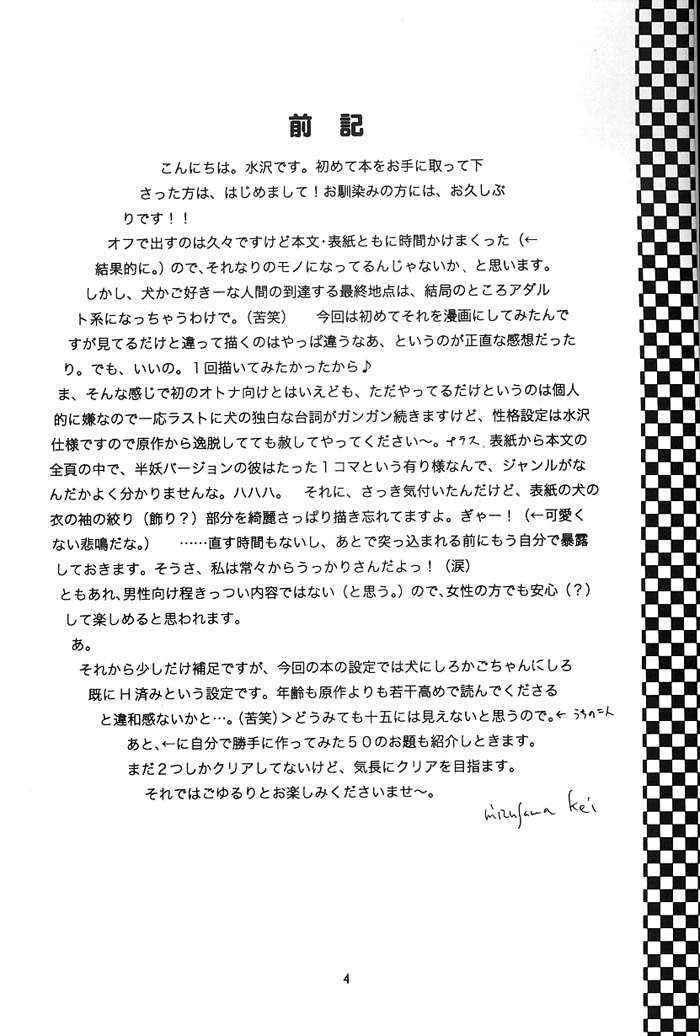 前　記
こんにちは。水沢です。初めて本をお手に取って下
さった方は、はじめまして！お馴染みの方には、お久しぶ
りです！！
オフで出すのは久々ですけど本文・表紙ともに時間かけまくった（←
結果的に。）ので、それなりのモノになってるんじゃないか、と思います。
しかし、犬かご好きーな人間の到達する最終地点は、結局のところアダル
ト系になっちゃうわけで。（苦笑）　今回は初めてそれを漫画にしてみたんで
すが見てるだけと違って描くのはやっぱ違うなあ、というのが正直な感想だった
り。でも、いいの。１回描いてみたかったから♪
ま、そんな感じで初のオトナ向けとはいえども、ただやってるだけというのは個人
的に嫌なので一応ラストに犬の独白な台詞がガンガン続きますけど、性格設定は水沢
仕様ですので原作から逸脱してても赦してやってください～。プラス、表紙から本文の
全頁の中で、半妖バージョンの彼はたった１コマという有り様なんで、ジャンルがな
んだかよく分かりませんな。ハハハ。　それに、さっき気付いたんだけど、表紙の犬の
衣の袖の絞り（飾り？）部分を綺麗さっぱり描き忘れてますよ。ぎゃー！（←可愛く
ない悲鳴だな。）　……直す時間もないし、あとで突っ込まれる前にもう自分で暴露
しておきます。そうさ、私は常々からうっかりさんだよっ！（涙）
ともあれ、男性向け程きっつい内容ではない（と思う。）ので、女性の方でも安心（？）
して楽しめると思われます。
あ。
それから少しだけ補足ですが、今回の本の設定では犬にしろかごちゃんにしろ
既にＨ済みという設定です。年齢も原作よりも若干高めで読んでくださる
と違和感ないかと…。（苦笑）＞どうみても十五には見えないと思うので。←うちの二人
あと、←に自分で勝手に作ってみた５０のお題も紹介しときます。
まだ２つしかクリアしてないけど、気長にクリアを目指ます。
それではごゆるりとお楽しみくださいませ～。
mizusawa kei
4